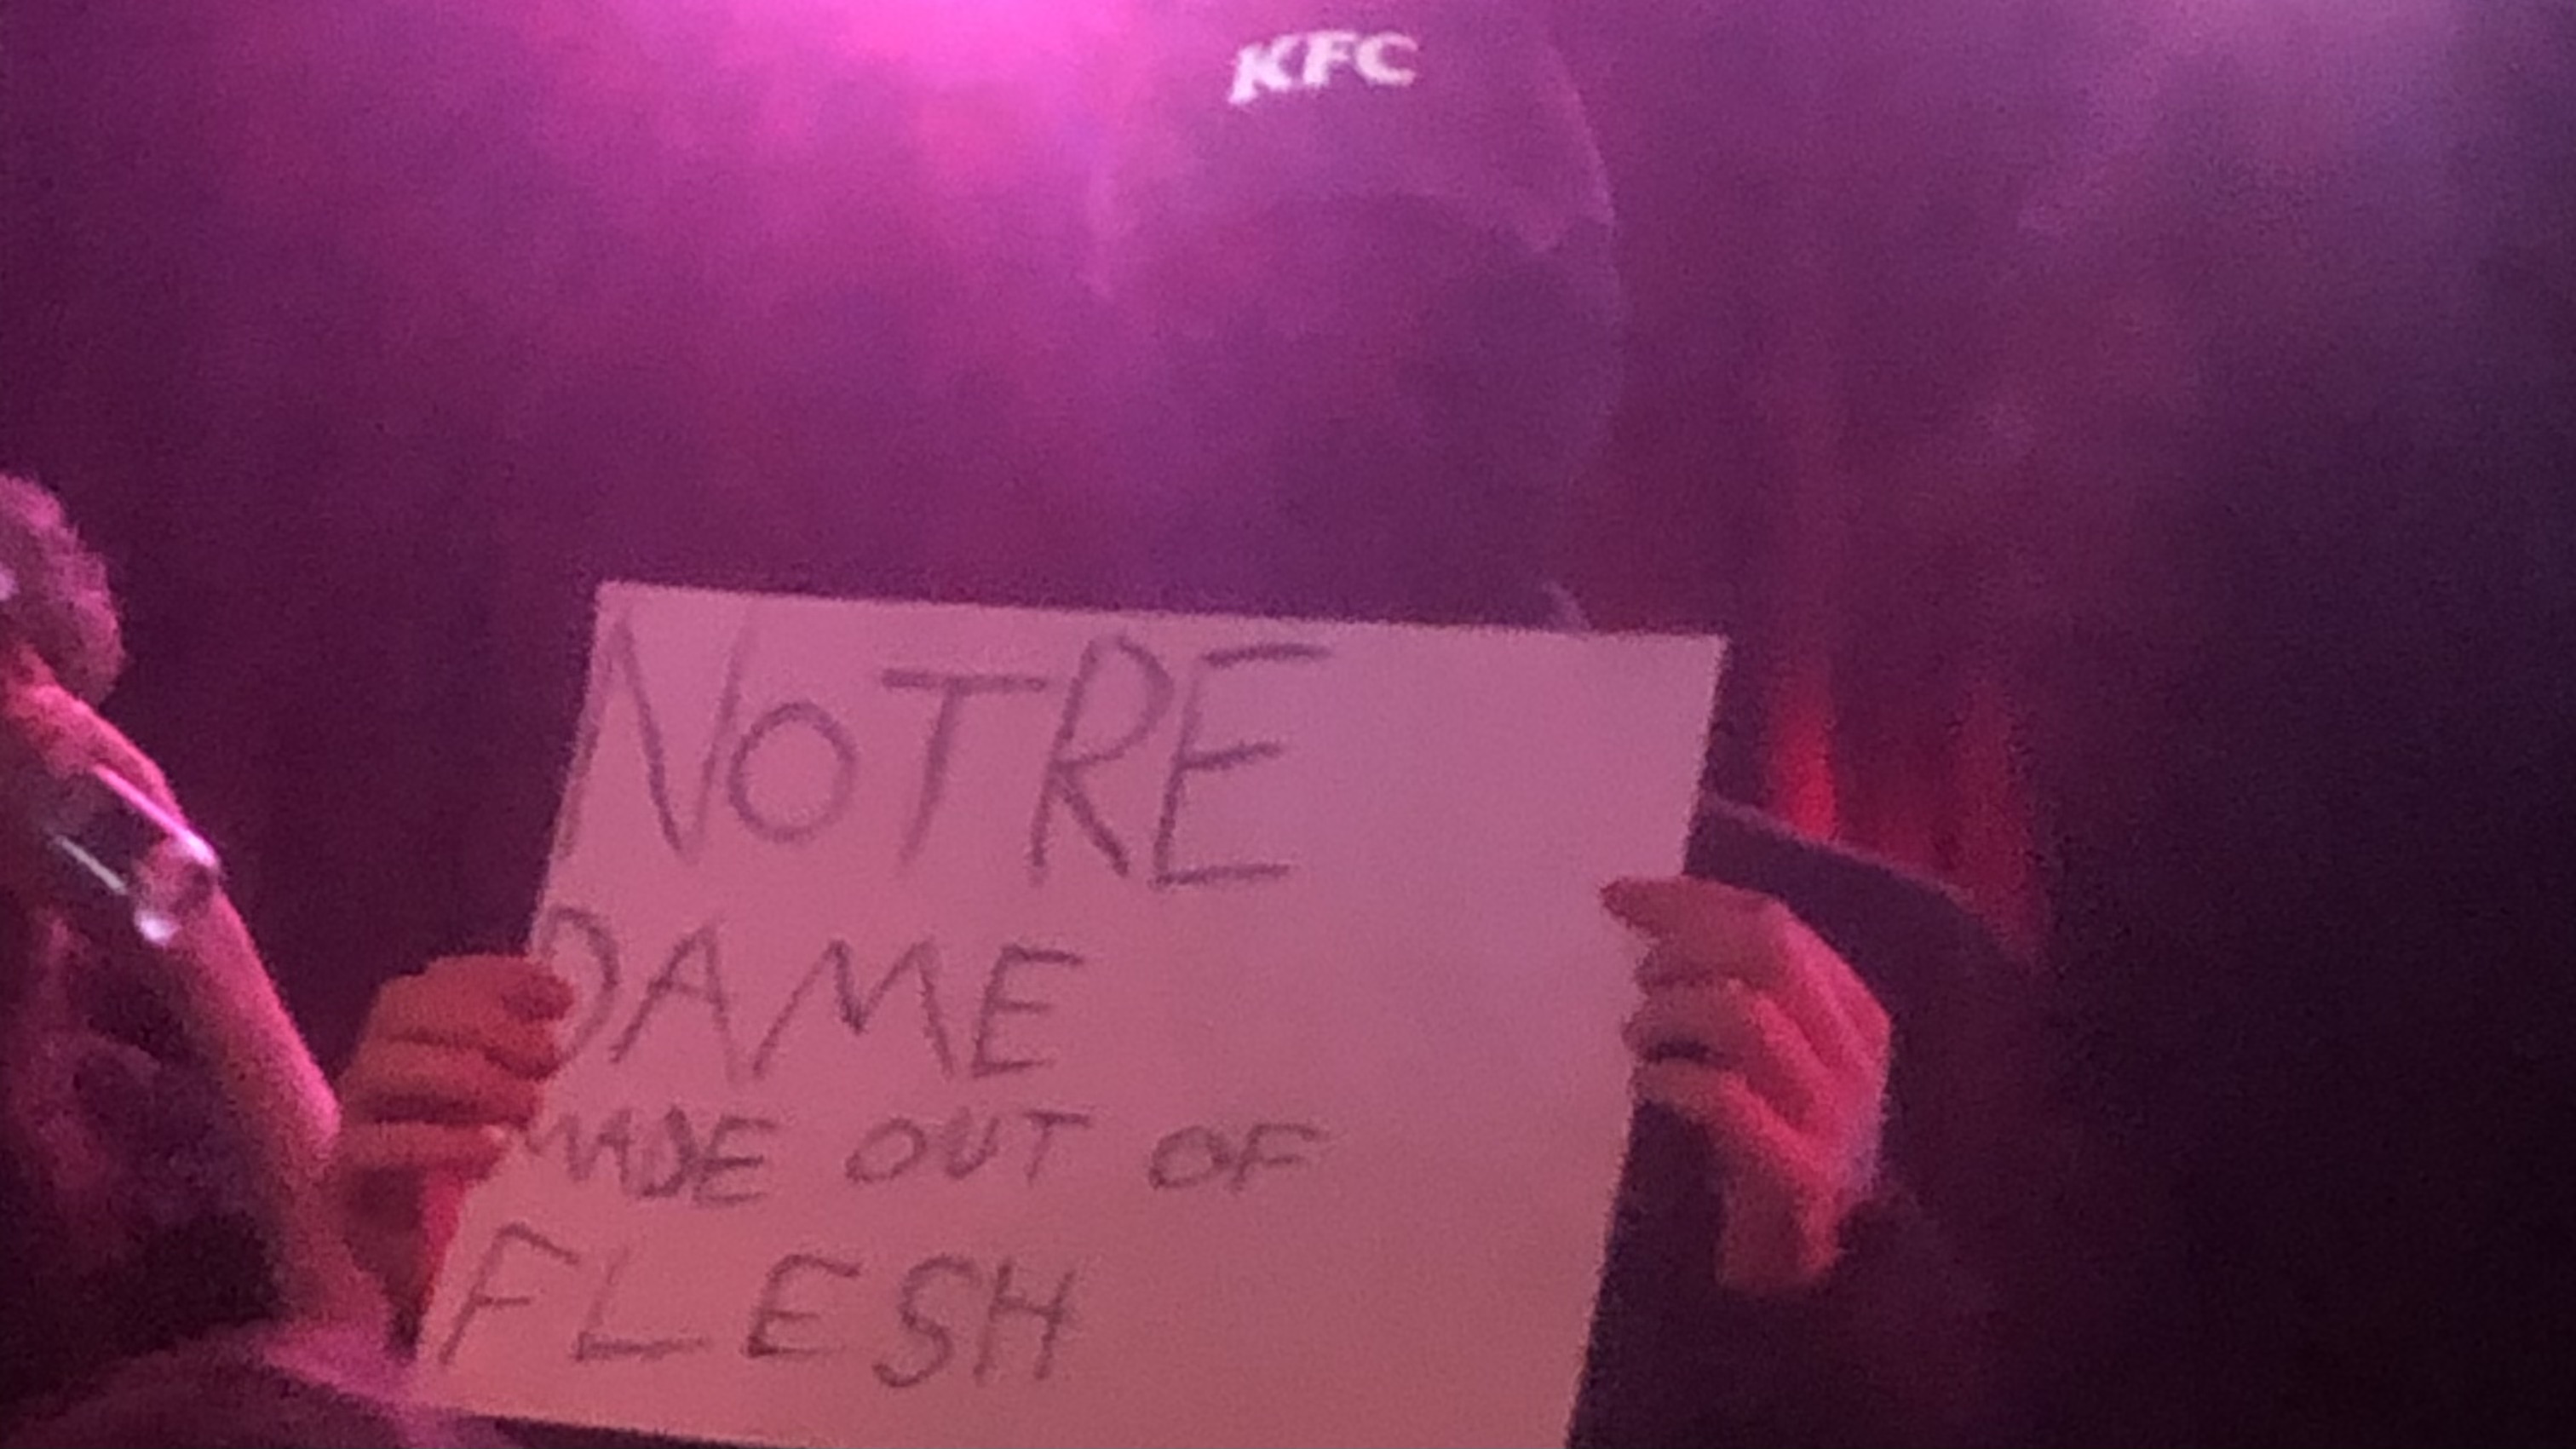 KFC
NOTRE
DAME
MADE OUT OF
FLESH